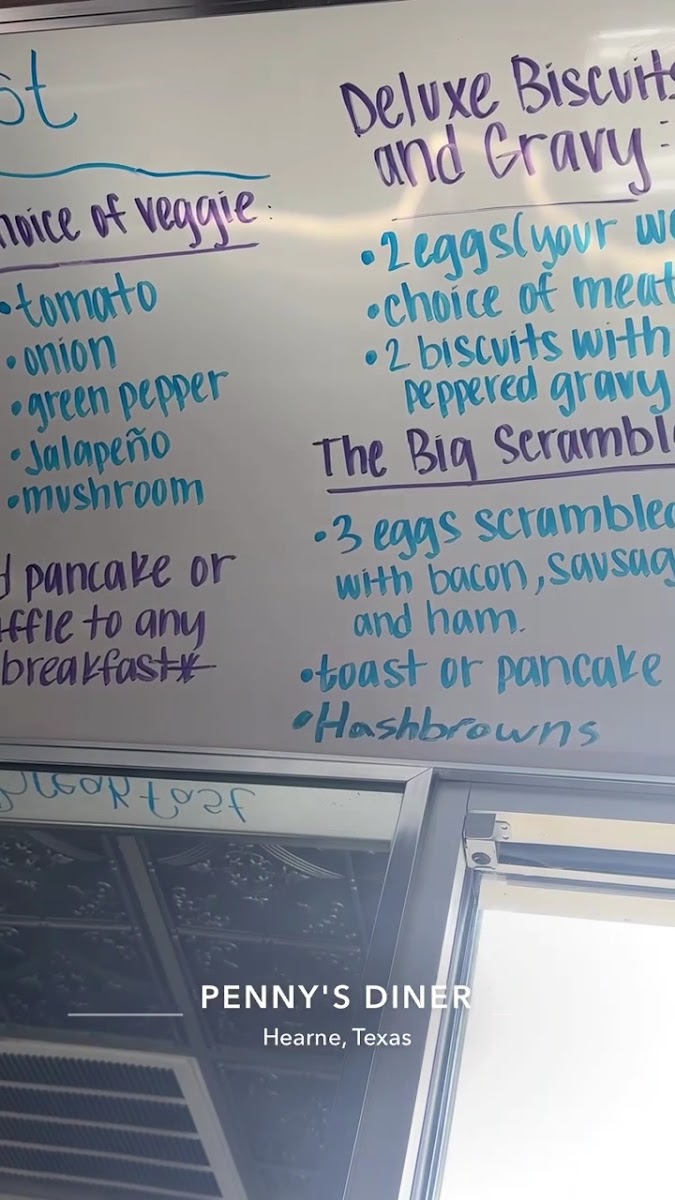 st
hoice of veggie:
•tomato
•onion
•green pepper
•Jalapeño
•mushroom
d pancake or
ffle to any
breakfast*
Deluxe Biscuits
and Gravy:
•2 eggs (your w
•choice of meat
•2 biscuits with
peppered gravy
The Big Scrambl
•3 eggs scrambled
with bacon, sausag
and ham.
•toast or pancake
•Hashbrowns
breakfast
PENNY'S DINER
Hearne, Texas